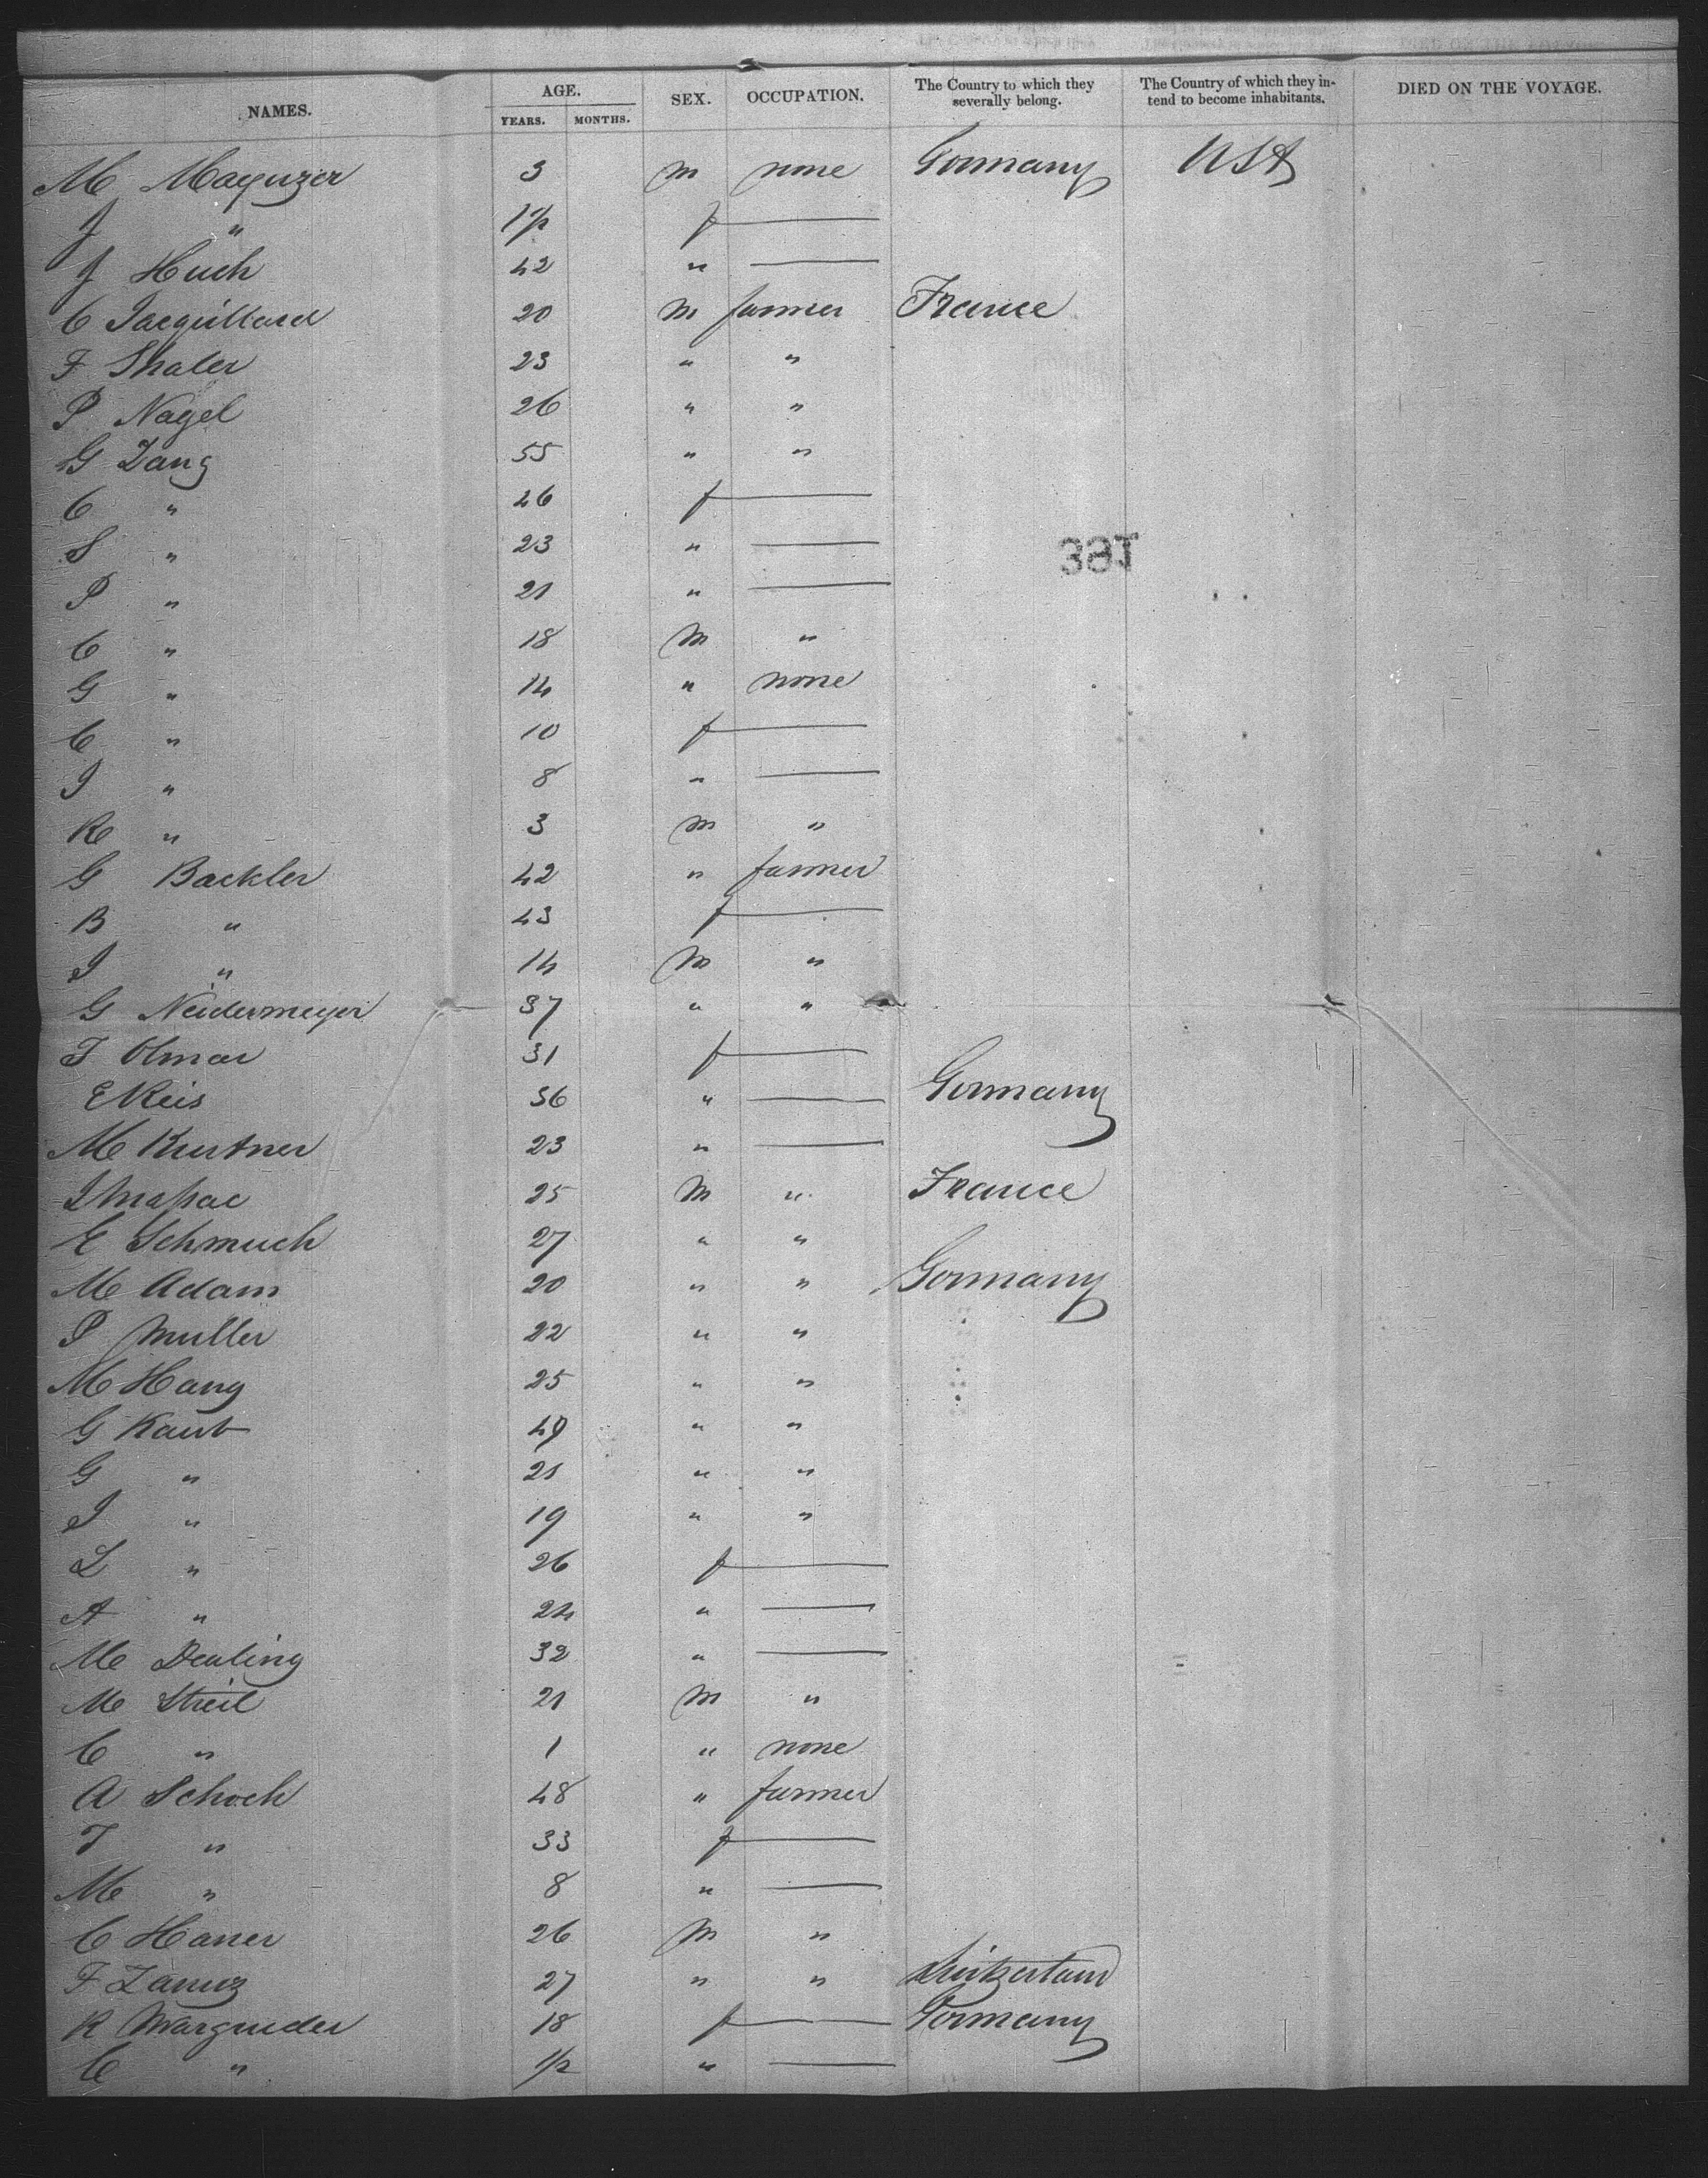 NAMES. AGE. YEARS. MONTHS. SEX. OCCUPATION. The Country to which they severally belong. The Country of which they intend to become inhabitants. DIED ON THE VOYAGE.
M 3 m none Germany USA
J " 1½ f —
J Huch 42 " —
C Jacquillard 20 m farmer France
F Thaler 23 " "
P Nagel 26 " "
G Zang 55 " "
C " 46 f —
S " 23 " —
P " 21 " —
C " 18 m "
G " 14 " none
C " 10 f —
J " 8 " —
R " 3 m "
G Backler 42 " farmer
B " 43 f —
J " 14 m "
G Neidermeyer 37 " "
T Olmar 31 f —
E Reis 36 " — Germany
M 23 " —
25 m " France
E Schmuch 27 " "
M Adam 20 " " Germany
P Muller 22 " "
M Hang 25 " "
G Kaub 49 " "
G " 21 " "
J " 19 " "
L " 26 f —
A " 24 " —
M Dealing 32 " —
M Streil 21 m "
C " 1 " none
A Schoch 48 " farmer
T " 33 f —
M " 8 " —
C Haner 26 m "
F 27 " " Switzerland
R Margreeder 18 f — Germany
C " ½ " —